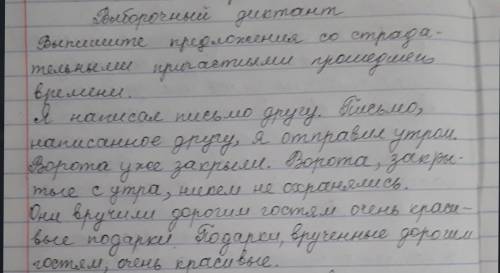 Выборочный диктант
Выпишите предложения со страда-
тельными причастиями прошедшего
времени.
Я написал письмо другу. Письмо,
написанное другу, я отправил утром.
Ворота уже закрыли. Ворота, закры-
тые с утра, никем не охранялись.
Они вручили дорогим гостям очень краси-
вые подарки. Подарки, врученные дорогим
гостям, очень красивые.